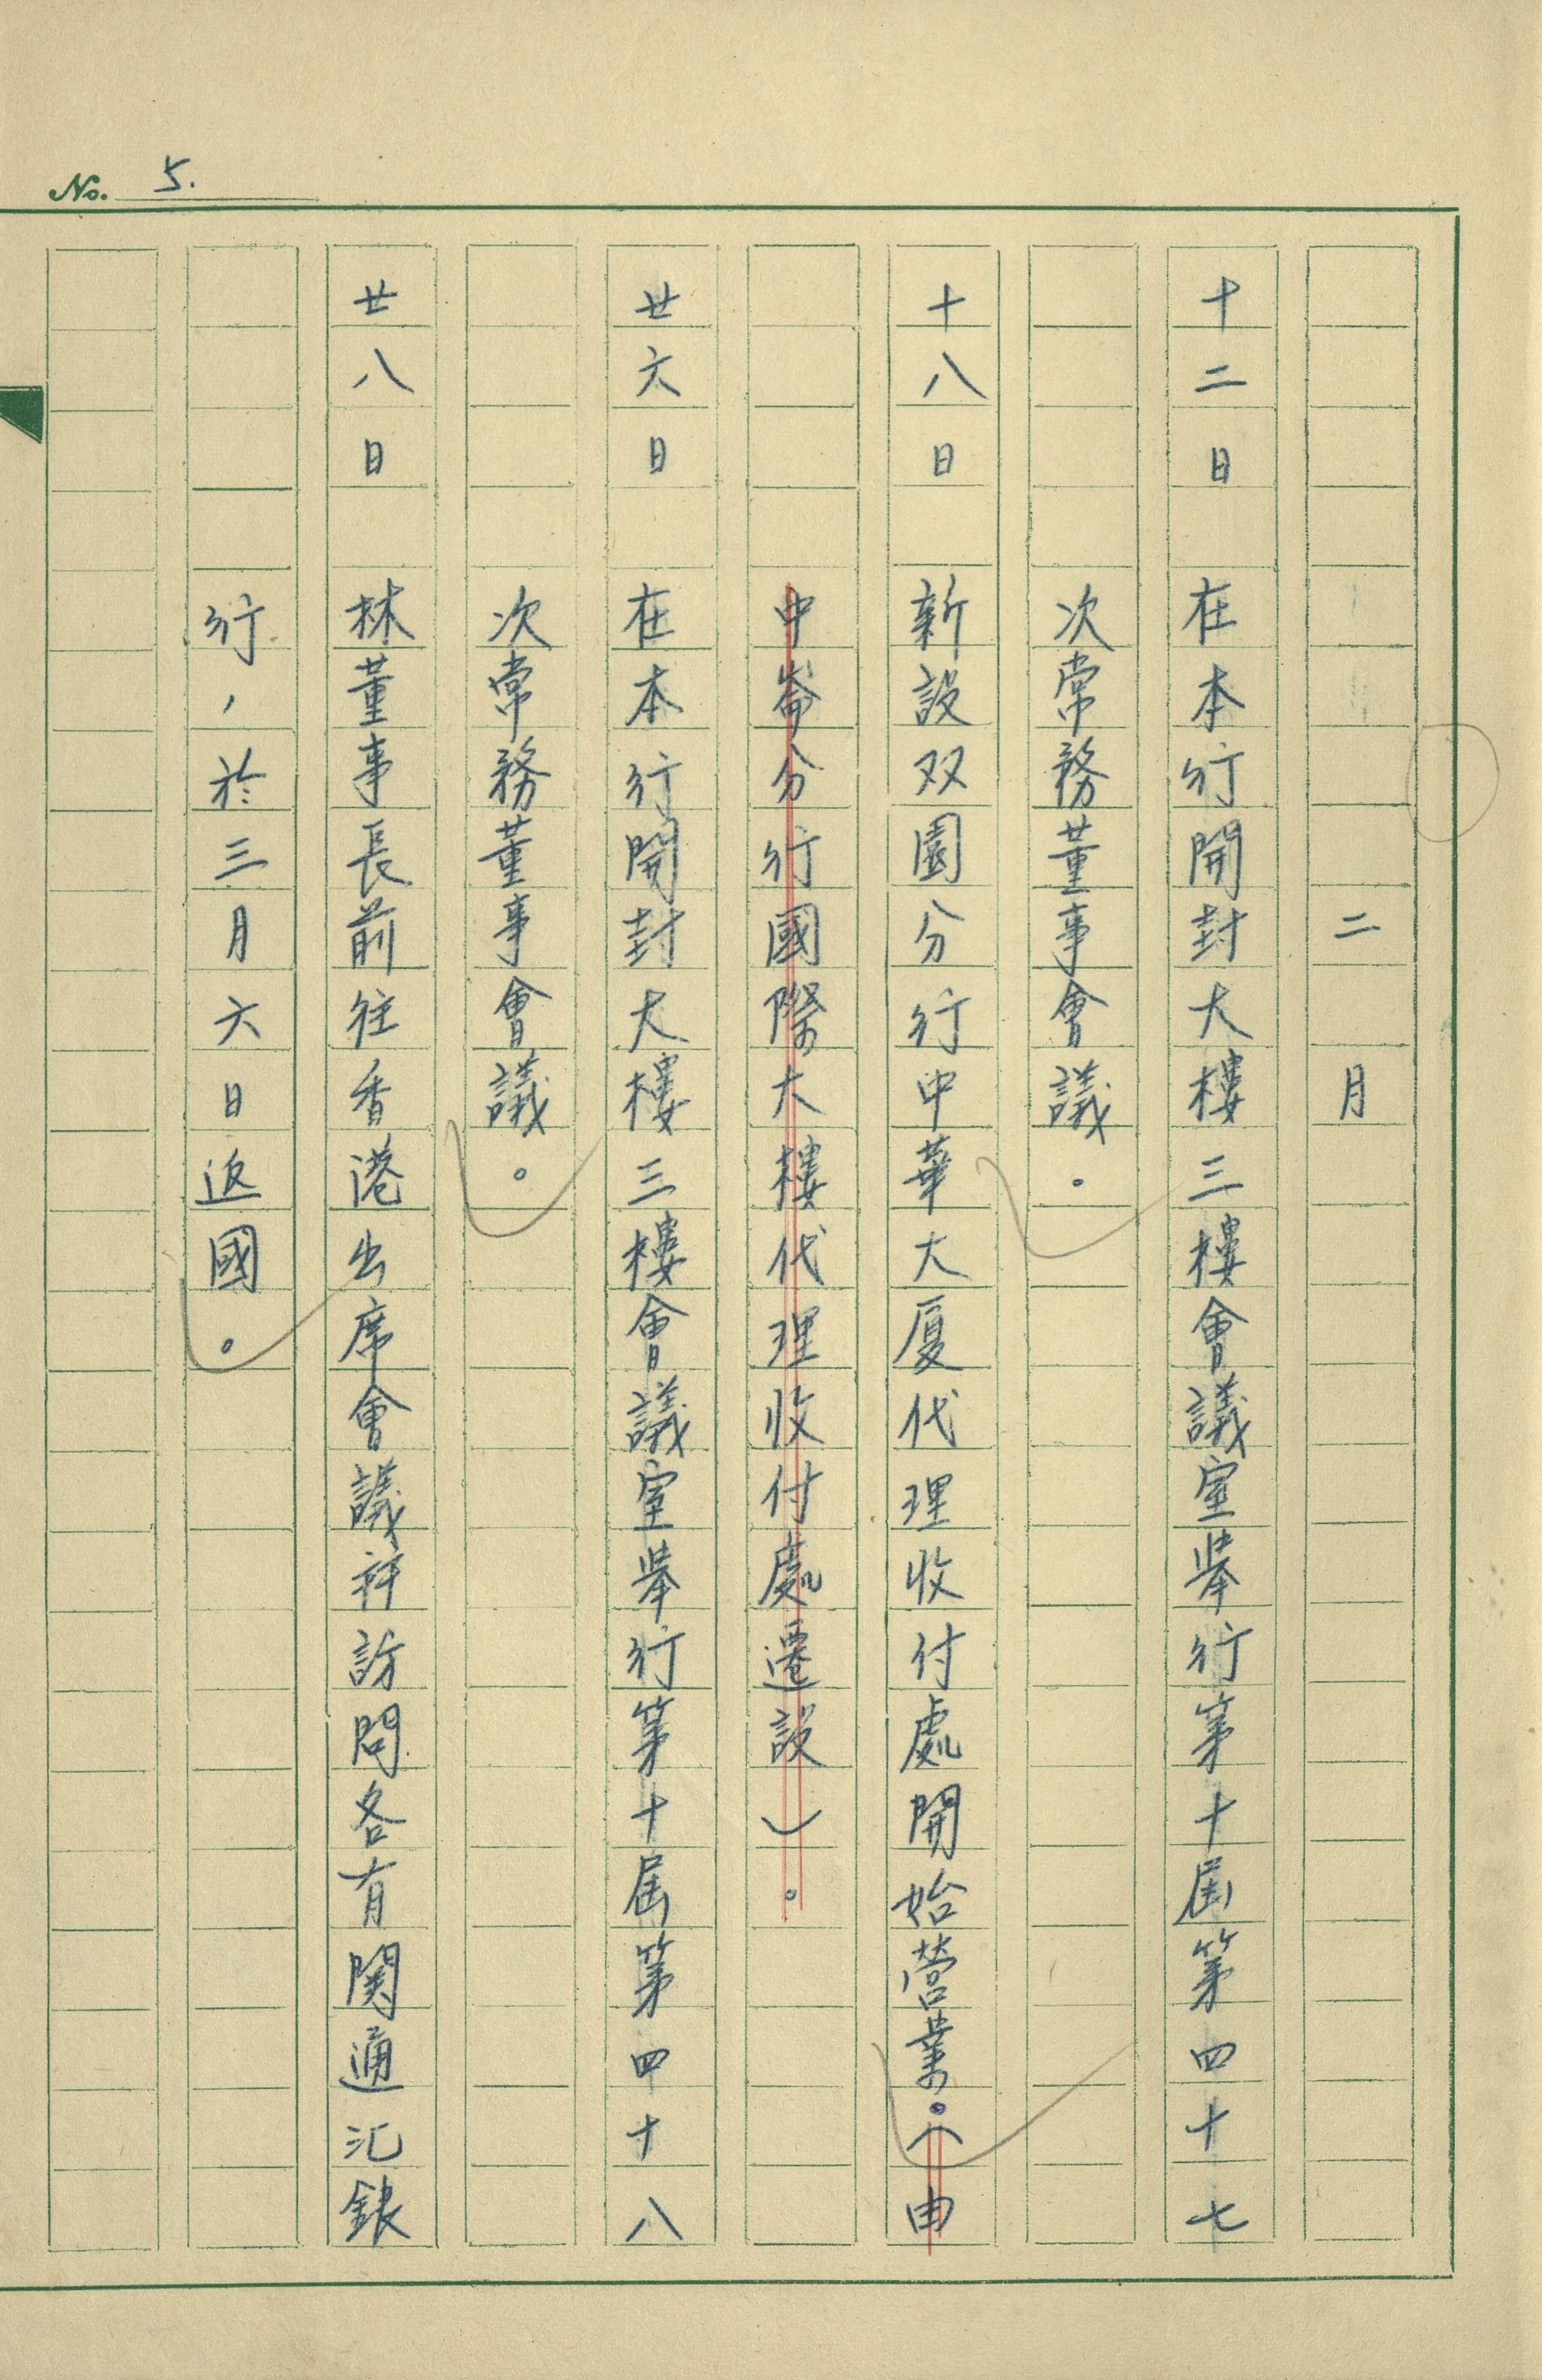 No. 5.
二月
十二日 在本行開封大樓三樓會議室举行第十届第四十七
次常務董事會議。
十八日 新設双園分行中華大厦代理收付處開始營業。(由
中崙分行國際大樓代理收付處遷設)。
廿六日 在本行開封大樓三樓會議室举行第十届第四十八
次常務董事會議。
廿八日 林董事長前往香港出席會議并訪問各有関通汇銀
行,於三月六日返國。